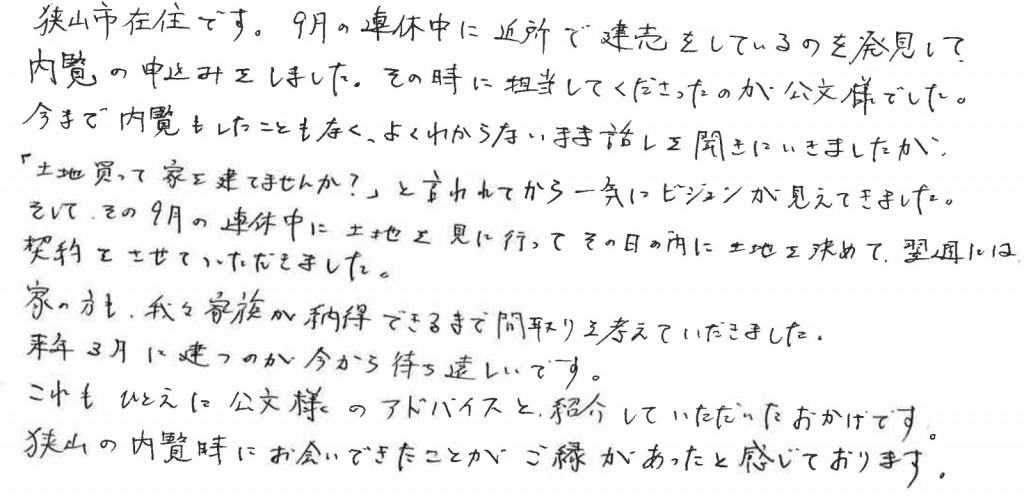 狭山市在住です。9月の連休中に近所で建売をしているのを発見して、
内覧の申込みをしました。その時に担当してくださったのが公文様でした。
今まで内覧もしたこともなく、よくわからないまま話しを聞きにいきましたが、
「土地買って家を建てませんか？」と言われてから一気にビジョンが見えてきました。
そして、その9月の連休中に土地を見に行ってその日の内に土地を決めて、翌週には
契約をさせていただきました。
家の方も、我々家族が納得できるまで間取りを考えていだきました。
来年3月に建つのが今から待ち遠しいです。
これもひとえに公文様のアドバイスと、紹介していただいたおかげです。
狭山の内覧時にお会いできたことがご縁があったと感じております。